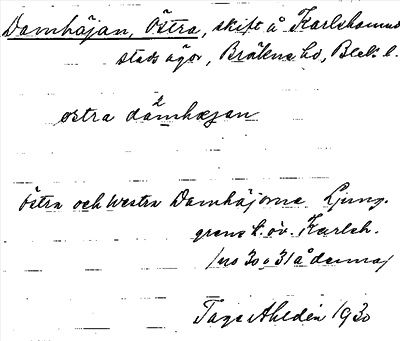 Damhäjan, Östra, skift å Karlshamns
stads ägor, Bräkne hd, Blek. l.
östra dàmhæjan
Östra och Westra Damhäjorna Ljung-
grens k. öv. Karlsh.
(no 30 o 31 å denna)
Tage Ahldén 1930